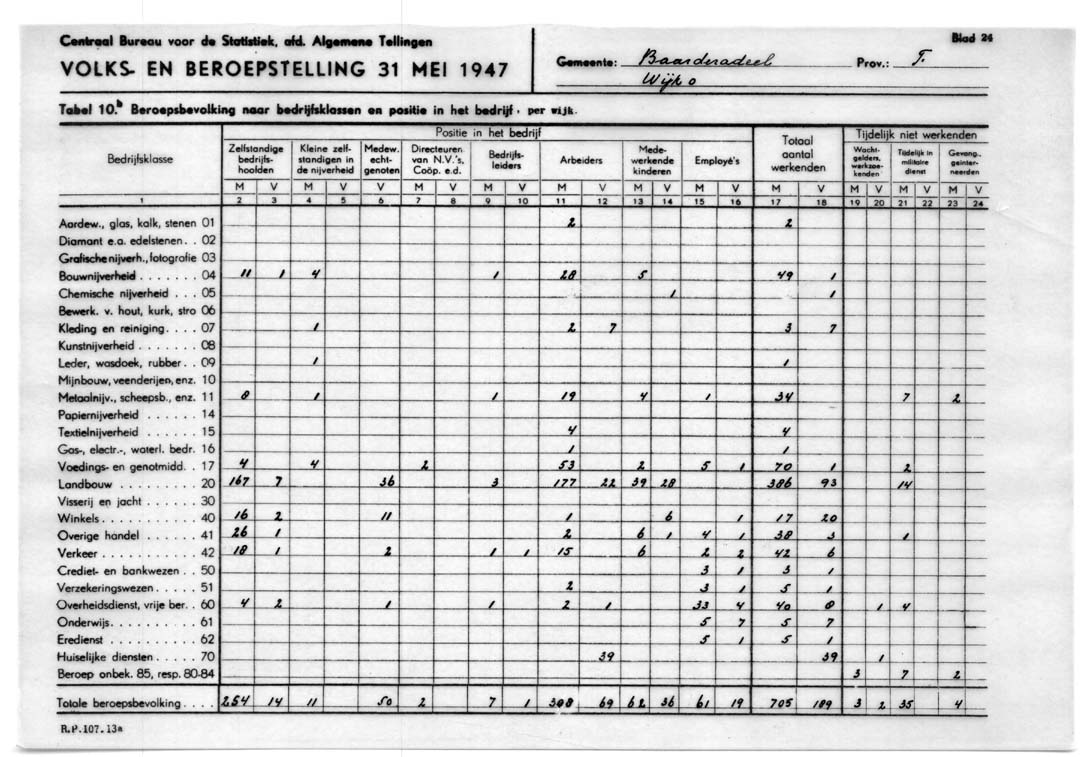 Centraal Bureau voor de Statistiek, afd. Algemene Tellingen
Blad 24
VOLKS- EN BEROEPSTELLING 31 MEI 1947
Gemeente: Baarderadeel Prov.: F.
Wijk 0
Tabel 10.b Beroepsbevolking naar bedrijfsklassen en positie in het bedrijf, per wijk.
Bedrijfsklasse
Positie in het bedrijf
Totaal aantal werkenden
Tijdelijk niet werkenden
Zelfstandige bedrijfshoofden
Kleine zelfstandigen in de nijverheid
Medew. echtgenoten
Directeuren van N.V.'s, Coöp. e.d.
Bedrijfsleiders
Arbeiders
Medewerkende kinderen
Employé's
Wachtgelders, werkzoekenden
Tijdelijk in militaire dienst
Gevang., geïnterneerden
M V M V V M V M V M V M V M V M V M V M V M V
1 2 3 4 5 6 7 8 9 10 11 12 13 14 15 16 17 18 19 20 21 22 23 24
Aardew., glas, kalk, stenen 01 2 2
Diamant e.a. edelstenen. . 02
Grafische nijverh., fotografie 03
Bouwnijverheid . . . . . 04 11 1 4 1 28 5 49 1
Chemische nijverheid . . . 05 1 1
Bewerk. v. hout, kurk, stro 06
Kleding en reiniging. . . . 07 1 2 7 3 7
Kunstnijverheid . . . . . 08
Leder, wasdoek, rubber. . 09 1 1
Mijnbouw, veenderijen, enz. 10
Metaalnijv., scheepsb., enz. 11 8 1 1 19 4 1 34 7 2
Papiernijverheid . . . . . 14
Textielnijverheid . . . . . 15 4 4
Gas-, electr.-, waterl. bedr. 16 1 1
Voedings- en genotmidd. . 17 4 4 2 53 2 5 1 70 1 2
Landbouw . . . . . . . 20 167 7 36 3 177 22 39 28 386 93 14
Visserij en jacht . . . . . 30
Winkels. . . . . . . . . 40 16 2 11 1 6 1 17 20
Overige handel . . . . . 41 26 1 2 6 1 4 1 38 3 1
Verkeer . . . . . . . . 42 18 1 2 1 1 15 6 2 2 42 6
Crediet- en bankwezen . . 50 3 1 3 1
Verzekeringswezen. . . . . 51 2 3 1 5 1
Overheidsdienst, vrije ber. . 60 4 2 1 1 2 1 33 4 40 8 1 4
Onderwijs. . . . . . . . 61 5 7 5 7
Eredienst . . . . . . . . 62 5 1 5 1
Huiselijke diensten . . . . . 70 39 39 1
Beroep onbek. 85, resp. 80-84 3 7 2
Totale beroepsbevolking . . . . 254 14 11 50 2 7 1 308 69 62 36 61 19 705 189 3 2 35 4
R.P.107.13a